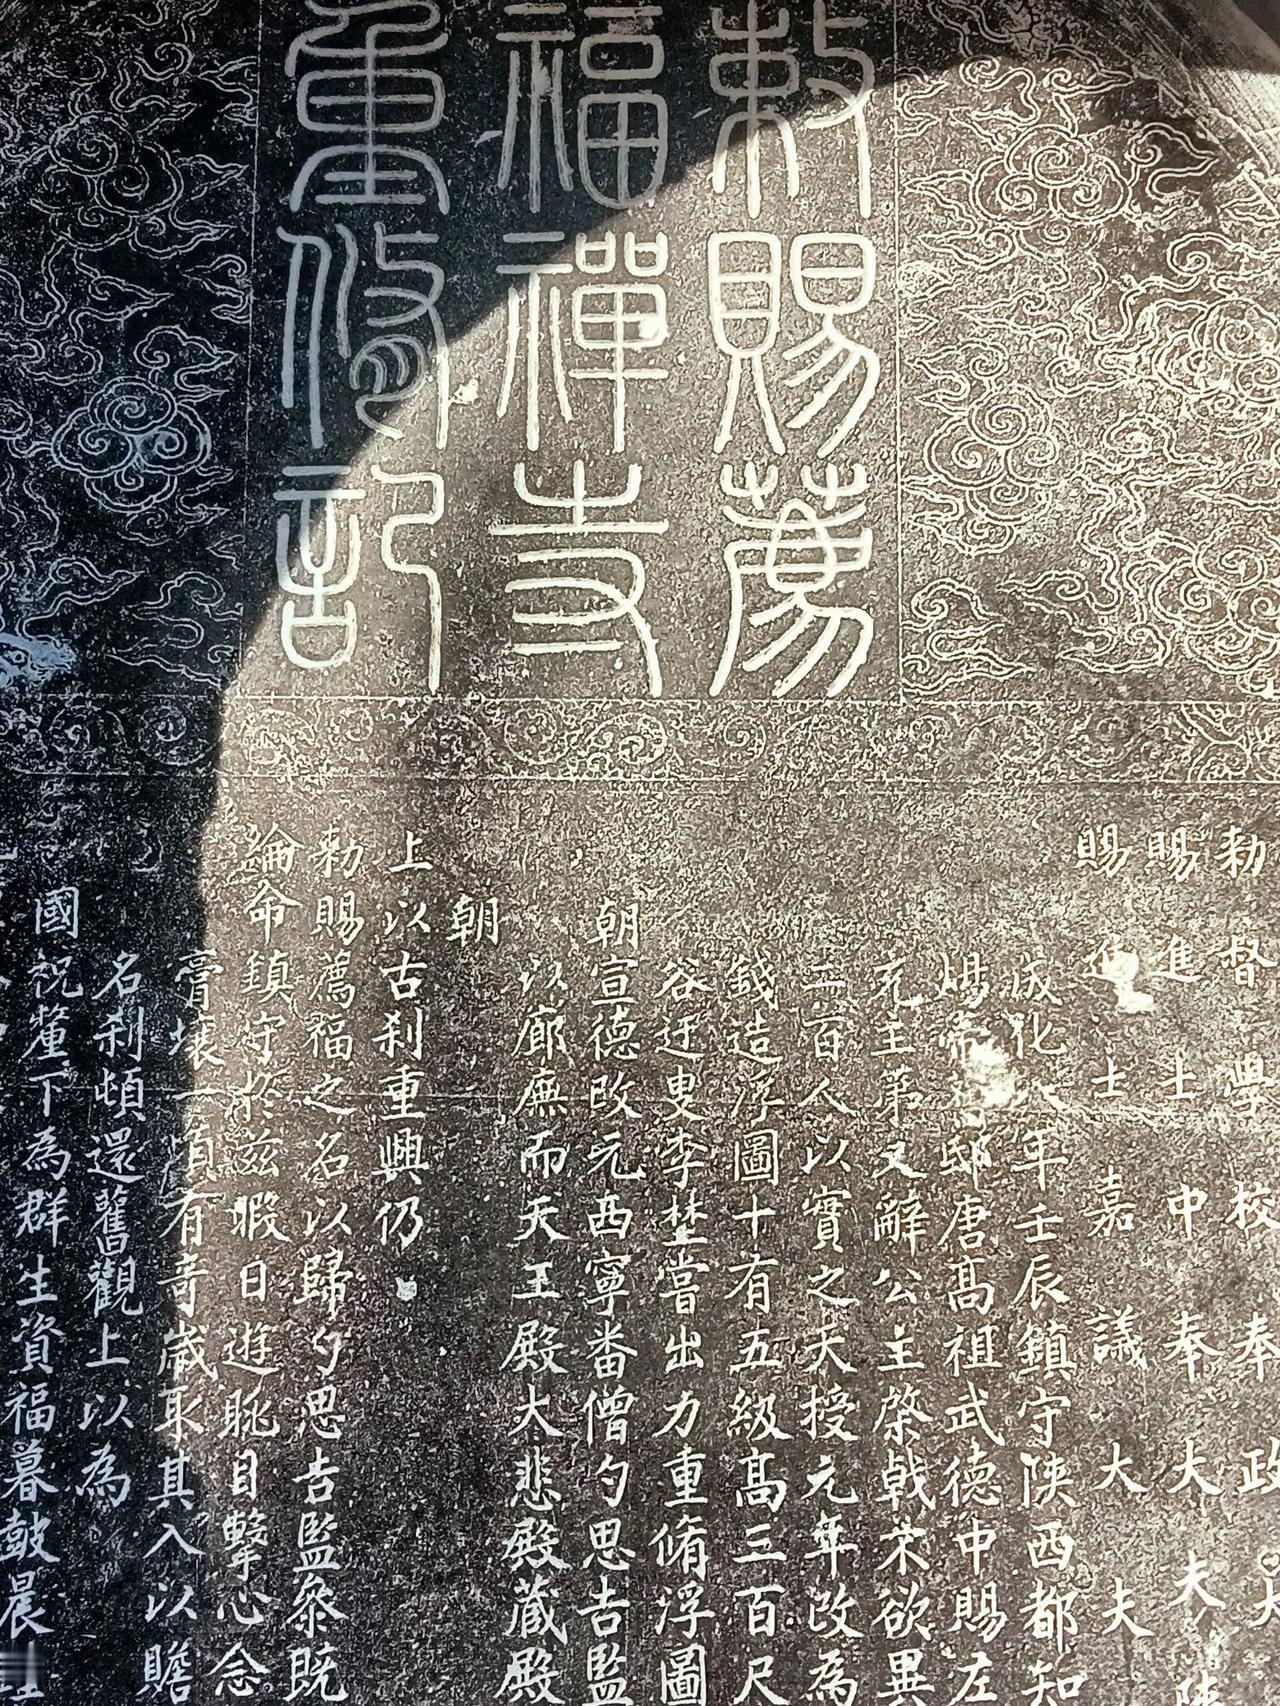 敕賜薦
福禪寺
重脩記
勑督學校奉政大
賜進士中奉大夫陝
賜進士嘉議大夫
成化八年壬辰鎮守陝西都知
煬帝邸唐高祖武德中賜左
充主第又辭公主棨戟不欲異
二百人以實之天授元年改為
錢造浮圖十有五級高三百尺
谷迂叟李埜嘗出力重脩浮圖
朝宣德改元西寧番僧勺思吉監
以廊廡而天王殿大悲殿藏殿
朝
上以古刹重興仍
勑賜薦福之名以歸勺思吉監叅既
綸命鎮守於兹暇日遊眺目擊心念
膏壤一頃有奇歲取其入以贍
名刹頓還舊觀上以為
國祝釐下為群生資福暮鼓晨